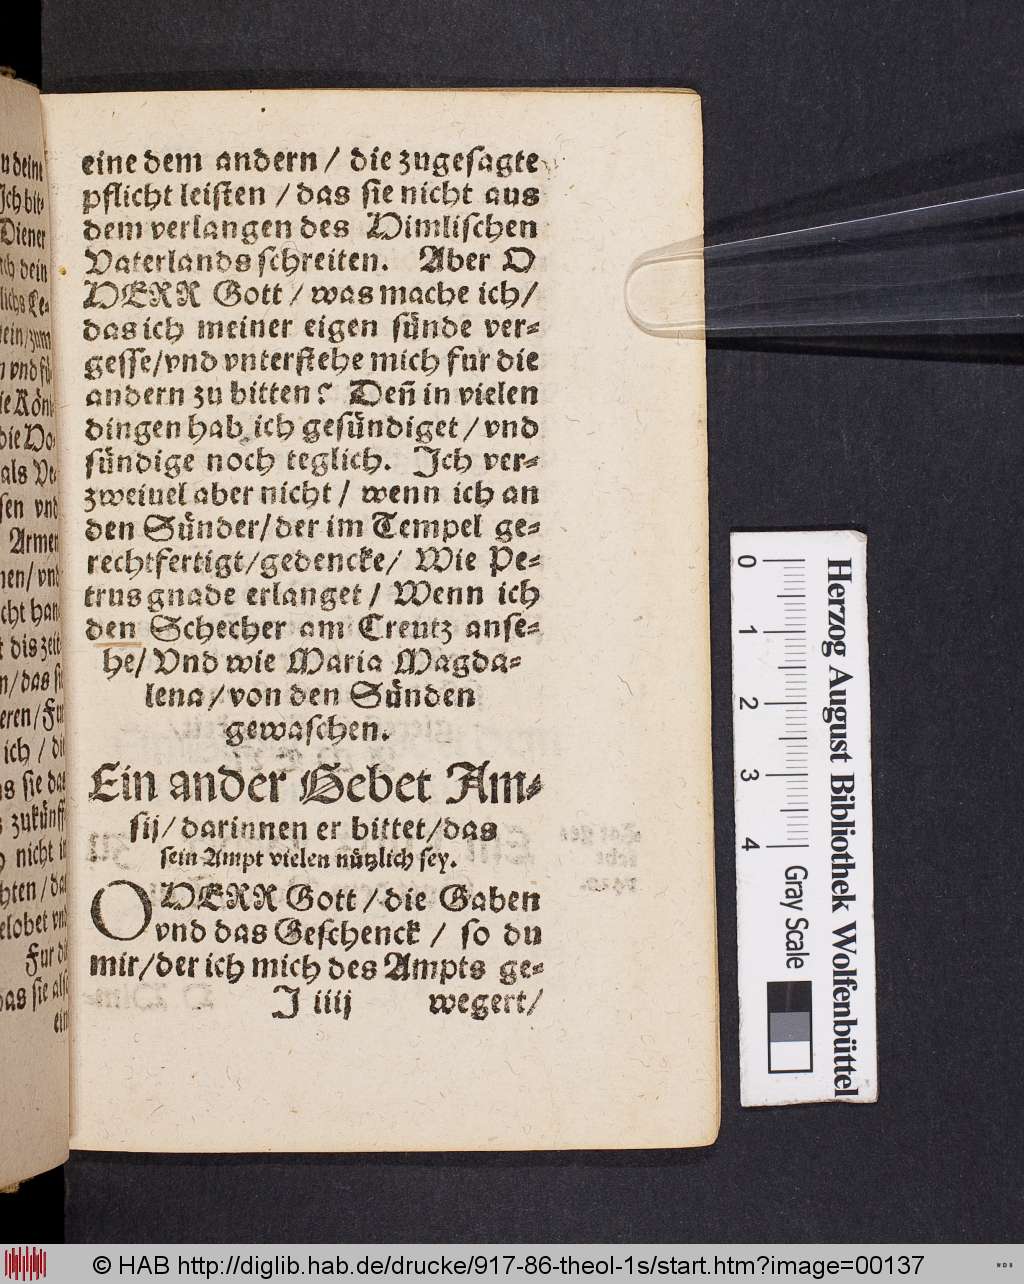 eine dem andern / die zugesagte
pflicht leisten / das sie nicht aus
dem verlangen des Himlischen
Vaterlands schreiten. Aber O
HERR Gott / was mache ich/
das ich meiner eigen sünde ver-
gesse/vnd vnterstehe mich fur die
andern zu bitten? Deñ in vielen
dingen hab ich gesündiget / vnd
sündige noch teglich. Ich ver-
zweiuel aber nicht / wenn ich an
den Sünder/der im Tempel ge-
rechtfertigt/gedencke/ Wie Pe-
trus gnade erlanget / Wenn ich
den Schecher am Creutz anse-
he/ Vnd wie Maria Magda-
lena / von den Sünden
gewaschen.
Ein ander Gebet Am-
sij/ darinnen er bittet/das
sein Ampt vielen nützlich sey.
O HERR Gott / die Gaben
vnd das Geschenck / so du
mir/der ich mich des Ampts ge-
J iiij wegert/
u deine
Diener
ch dein
ie Kön
als
sen vnd
Armen
nen/ vnd
cht han
n/das si
ich / di
s sie das
nicht in
elobet vnd
Fur di
das sie also
ein
0 1 2 3 4
Gray Scale
Herzog August Bibliothek Wolfenbüttel
© HAB http://diglib.hab.de/drucke/917-86-theol-1s/start.htm?image=00137